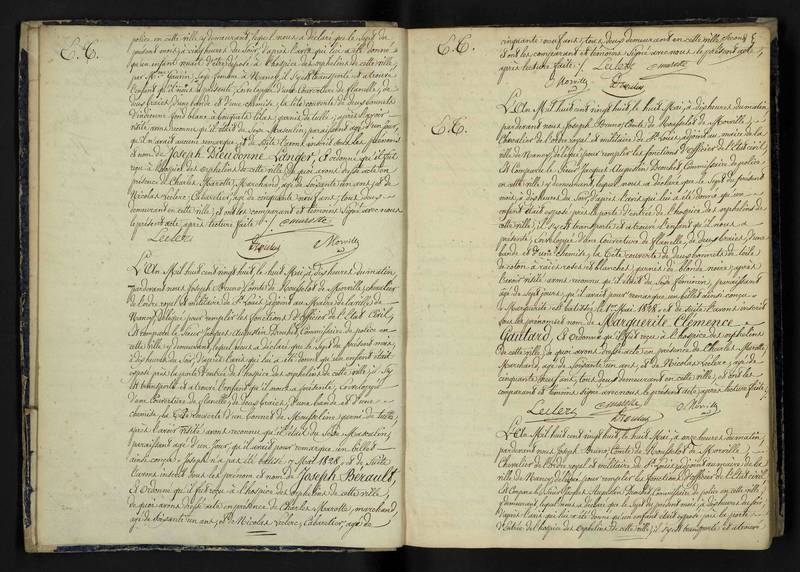 E.C.
police, en cette ville y demeurant, lequel nous a déclaré que le Sept du
présent mois, à cinq heures du soir, d'après l'avis qui lui a été donné
qu'un enfant venait d'être déposé à l'hospice des orphelins de cette ville,
par Mme Sage femme à Nancy, il s'y est transporté et a trouvé
l'enfant qu'il nous a présenté, enveloppé d'une couverture de flanelle, de
deux braies, d'une bande et d'une chemise, la tête couverte de deux bonnets
d'indienne fond blanc, garnis de tulle; après l'avoir
visité, avons reconnu qu'il était du Sexe Masculin, paraissant âgé d'un jour,
qu'il n'avait aucune remarque; et de suite l'avons inscrit sous les prénoms
et nom de Joseph Dieudonné Langer, et ordonné qu'il fût
reçu à l'hospice des orphelins de cette ville, de quoi avons dressé acte en
présence de Charles Marotte, Marchand, âgé de soixante un ans, et de
Nicolas Leclerc, Cabaretier, âgé de cinquante neuf ans, tous deux
demeurant en cette ville; et ont les comparant et témoins signé avec nous
le présent acte, après lecture faite.
Leclerc
L'An Mil huit cent vingt huit, le huit Mai, à dix heures du matin,
pardevant nous Joseph Bruno, Comte de Morville, chevalier
de l'ordre royal et militaire de St Louis, adjoint au Maire de la ville de
Nancy, délégué pour remplir les fonctions d'officier de l'Etat Civil,
est comparu le Sieur Jacques Augustin Commissaire de police en
cette ville, y demeurant, lequel nous a déclaré que le Sept du présent mois,
à dix heures du Soir, d'après l'avis qui lui a été donné qu'un enfant était
exposé près la porte d'entrée de l'hospice des orphelins de cette ville, il s'y
est transporté et a trouvé l'enfant qu'il nous a présenté, enveloppé
d'une couverture de flanelle, de deux braies, d'une bande et d'une
chemise, la tête couverte d'un bonnet de Mousseline garni de tulle,
après l'avoir visité avons reconnu qu'il était du Sexe Masculin,
paraissant âgé d'un jour, qu'il avait pour remarque un billet
ainsi conçu: Joseph n'a pas été batisé 7 Mai 1828, et de suite
l'avons inscrit sous les prénom et nom de Joseph Bérault,
et ordonné qu'il fût reçu à l'hospice des orphelins de cette ville,
de quoi avons dressé acte en présence de Charles Marotte, marchand,
âgé de soixante un ans, et de Nicolas Leclerc, Cabaretier, âgé de
E.C.
cinquante neuf ans, tous deux demeurant en cette ville,
et ont les comparant et témoins signé avec nous le présent acte,
après lecture faite.
Leclerc
E.C.
L'An Mil huit cent vingt huit, le huit Mai, à dix heures du matin
pardevant nous Joseph Bruno, Comte de Morville,
Chevalier de l'ordre royal et militaire de St Louis, adjoint au maire de la
ville de Nancy, délégué pour remplir les fonctions d'officier de l'Etat civil,
est comparu le Sieur Jacques Augustin Commissaire de police
en cette ville, y demeurant, lequel nous a déclaré que le Sept du présent
mois, à dix heures du Soir, d'après l'avis qui lui a été donné qu'un
enfant était exposé près la porte d'entrée de l'hospice des orphelins de
cette ville, il s'y est transporté et a trouvé l'enfant qu'il nous a
présenté, enveloppé d'une couverture de flanelle, de deux braies, d'une
bande et d'une chemise, la tête couverte de deux bonnets de toile
de coton à raies et blanches, garnis de blonde noire; après
l'avoir visité avons reconnu qu'il était du Sexe féminin, paraissant
âgé de sept jours, qu'il avait pour remarque un billet ainsi conçu:
Marguerite est batisée, le 1er Mai 1828. et de suite l'avons inscrit
sous les prénoms et nom de Marguerite Clémence
Gaillard, et ordonné qu'il fût reçu à l'hospice des orphelins
de cette ville, de quoi avons dressé acte en présence de Charles Marotte,
Marchand, âgé de soixante un ans, et de Nicolas Leclerc, âgé de
cinquante neuf ans, tous deux demeurant en cette ville, et ont les
comparant et témoins signé avec nous le présent acte, après lecture faite.
Leclerc
L'An Mil huit cent vingt huit, le huit Mai, à onze heures du matin,
pardevant nous Joseph Bruno, Comte de Morville,
Chevalier de l'ordre royal et militaire de St Louis, adjoint au maire de la
ville de Nancy, délégué pour remplir les fonctions d'officier de l'Etat civil,
est comparu le Sieur Jacques Augustin Commissaire de police en cette ville,
y demeurant, lequel nous a déclaré que le Sept du présent mois, à dix heures du soir,
d'après l'avis qui lui a été donné qu'un enfant était exposé près la porte
d'entrée de l'hospice des orphelins de cette ville, il s'y est transporté et a trouvé